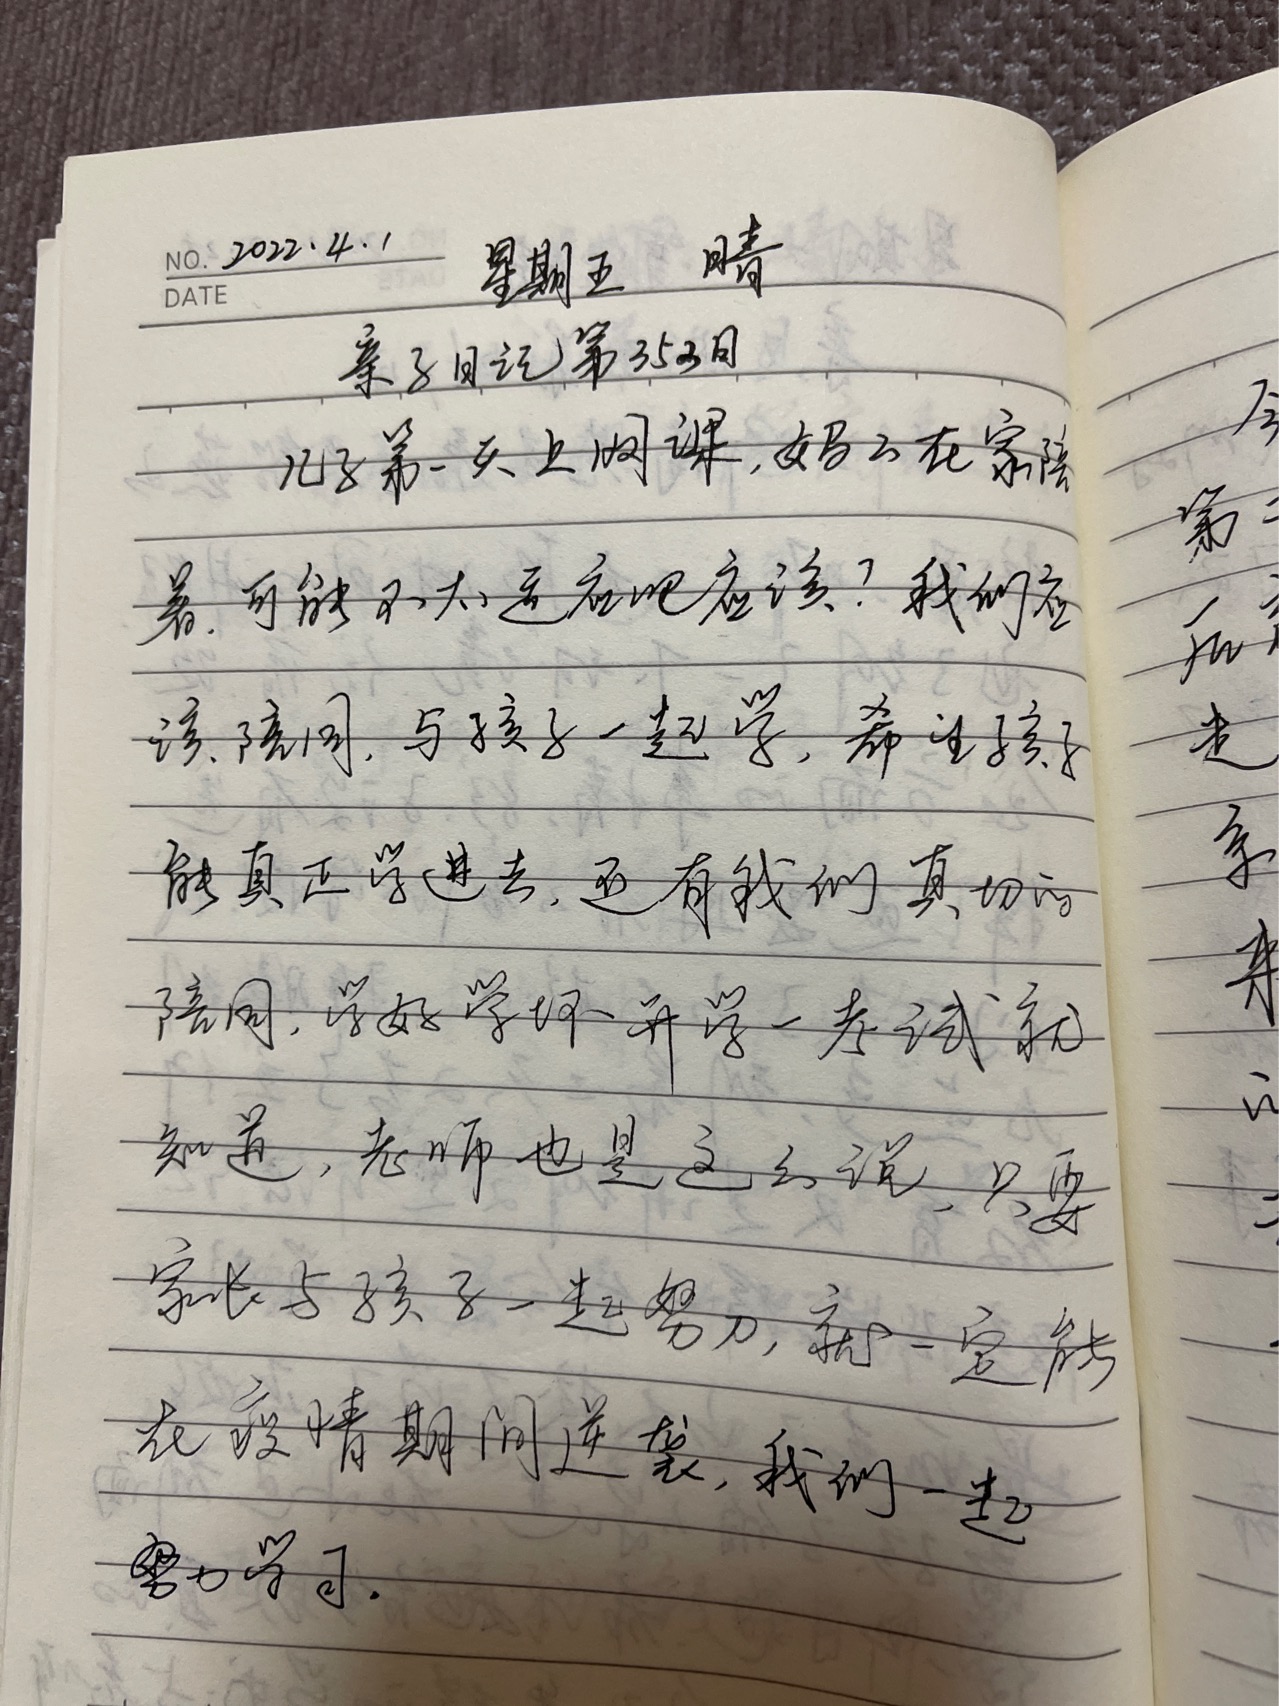 NO. 2022.4.1 星期五 晴
DATE
亲子日记第353日
儿子第一天上网课,妈妈在家陪
着.可能不太适应吧应该?我们应
该陪同,与孩子一起学,希望孩子
能真正学进去,还有我们真切的
陪同,学好学坏一开学一考试就
知道,老师也是这么说,只要
家长与孩子一起努力,就一定能
在疫情期间逆袭,我们一起
努力学习.
第二
走